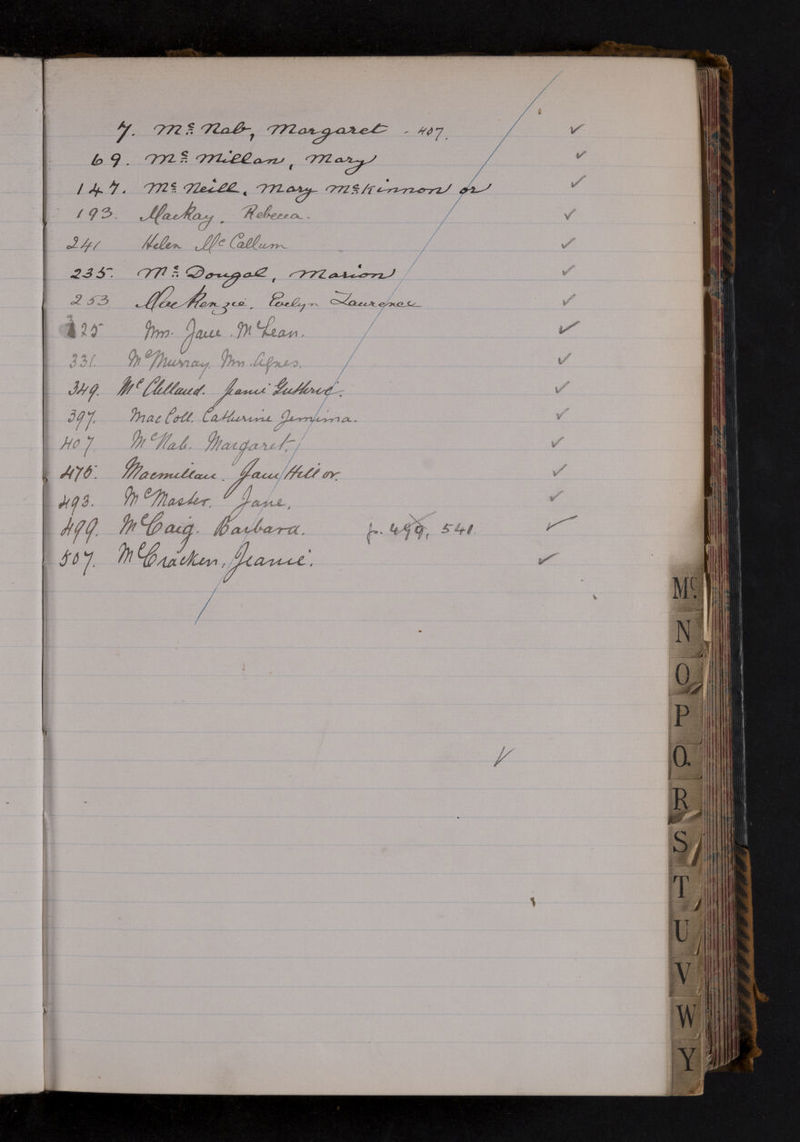 7. Mc Nab, Margaret - 407. ✓
69. Mc Millan, Mary ✓
147. Mc Neill, Mary McKinnon or ✓
193. MacKay, Rebecca. ✓
241 Helen McCallum ✓
235. Mc Dougal, Marion ✓
253 MacKenzie, Evelyn Laurence ✓
25 Mrs. Jane McLean. ✓
331. McMurray Mrs. Agnes. ✓
349. McClelland. Jamie Guthrie. ✓
397. MacColl. Catherine Jemima. ✓
407 McNab. Margaret. ✓
475. Macmillan. Jane Hill or. ✓
493. McMaster. Jane, ✓
499. McCaig. Barbara. p. 499, 540 ✓
507. McCracken, Jeanie. ✓
Mc.
N
O
P
Q.
R
S
T
U
V
W
Y
✓